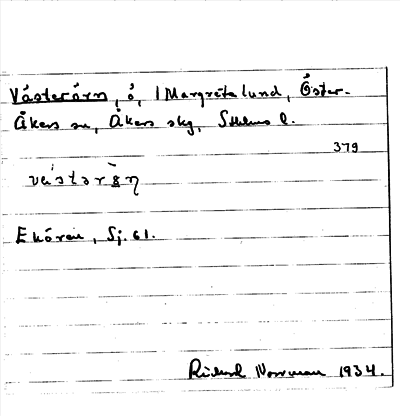 Västerörn, ö, 1 Margretelund, Öster-
Åkers sn, Åkers skg, Sthlms l.
379
Ekören, Sj. 61.
Rickard Norrman 1934.